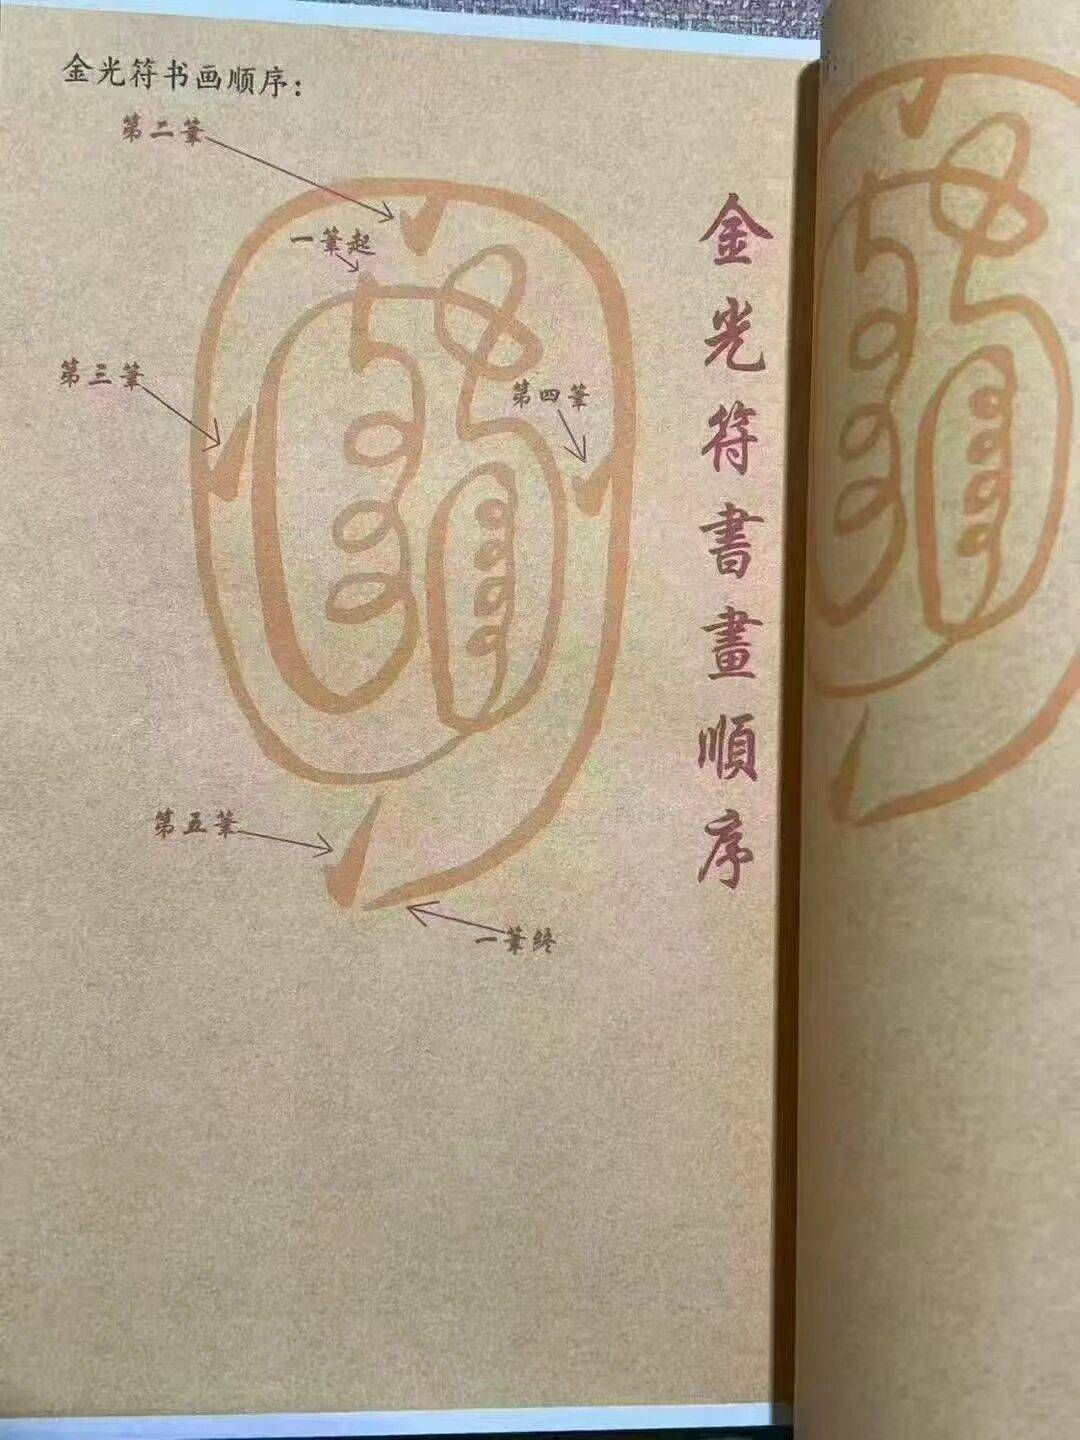 金光符书画顺序：
第二筆
一筆起
第三筆
第四筆
第五筆
一筆終
金光符書畫順序